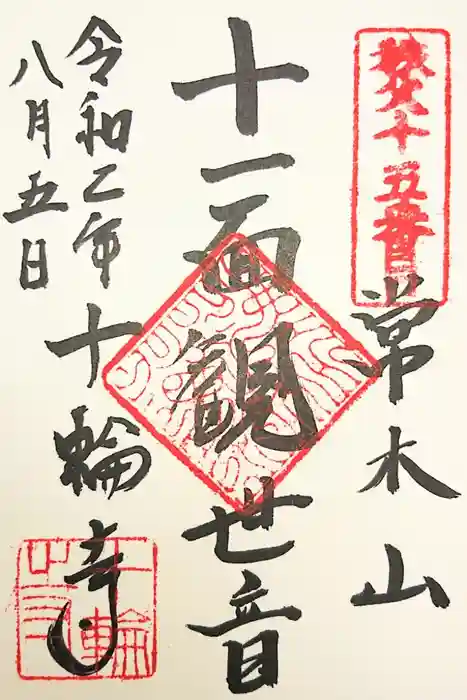 秩父十五番
常木山
十一面観世音
令和二年
八月五日
十輪寺